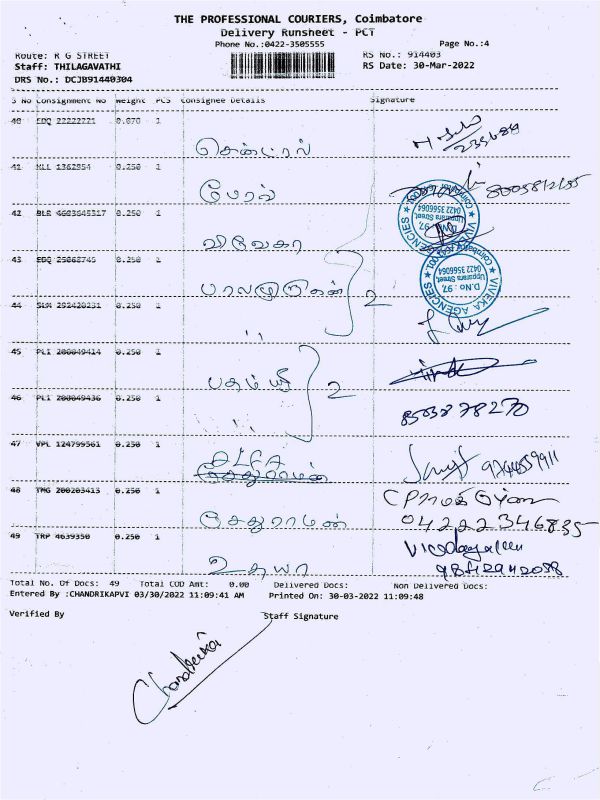 THE PROFESSIONAL COURIERS, Coimbatore
Delivery Runsheet - PCT
Phone No.:0422-3505555 Page No.:4
Route: R G STREET RS No.: 914403
Staff: THILAGAVATHI RS Date: 30-Mar-2022
DRS No.: DCJB91440304
S No Consignment No Weight PCS Consignee Details Signature
40 EDQ 22222721 0.070 1
சென்ட்ரல்
41 KLL 1362954 0.250 1
பேரல் 8005812155
42 BLR 4603645317 0.250 1
விவேகா
43 EDQ 25868745 0.250 1
பாலமுருகன் 2
44 292420231 0.250 1
,,
45 PLI 200049414 0.250 1
2
46 PLI 200049436 0.250 1
,,
VIVEKA AGENCIES
D.NO : 97,
Upparara Street,
0422 3566064
Coimbatore - 641 001.
47 VPL 124799561 0.250 1
ALFA
சேதுராமன்
48 TMG 200203413 0.250 1
சேதுராமன் 04222346835
49 TRP 4639350 0.250 1
உதயா 9842942058
Total No. Of Docs: 49 Total COD Amt: 0.00 Delivered Docs: Non Delivered Docs:
Entered By :CHANDRIKAPVI 03/30/2022 11:09:41 AM Printed On: 30-03-2022 11:09:48
Verified By Staff Signature
Chandrika